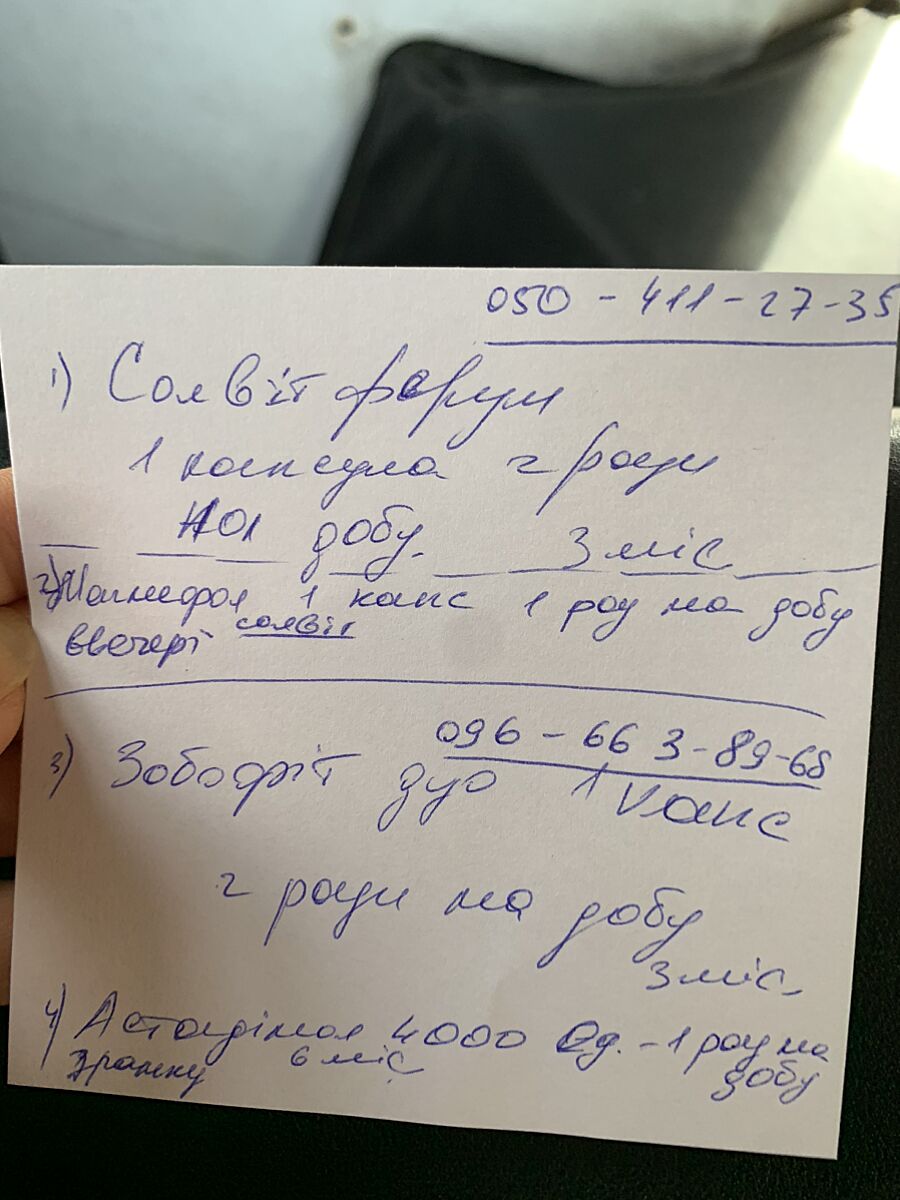 050 - 411 - 27-35
1) Солвіт форум
1 капсула 2 рази
на добу. 3 міс
2) 1 капс 1 раз на добу
ввечері солвіт
096 - 66 3-89-68
3) Зобофіт дуо 1 капс
2 рази на добу
3 міс
4) 4000 Од. - 1 раз на
зранку 6 міс добу